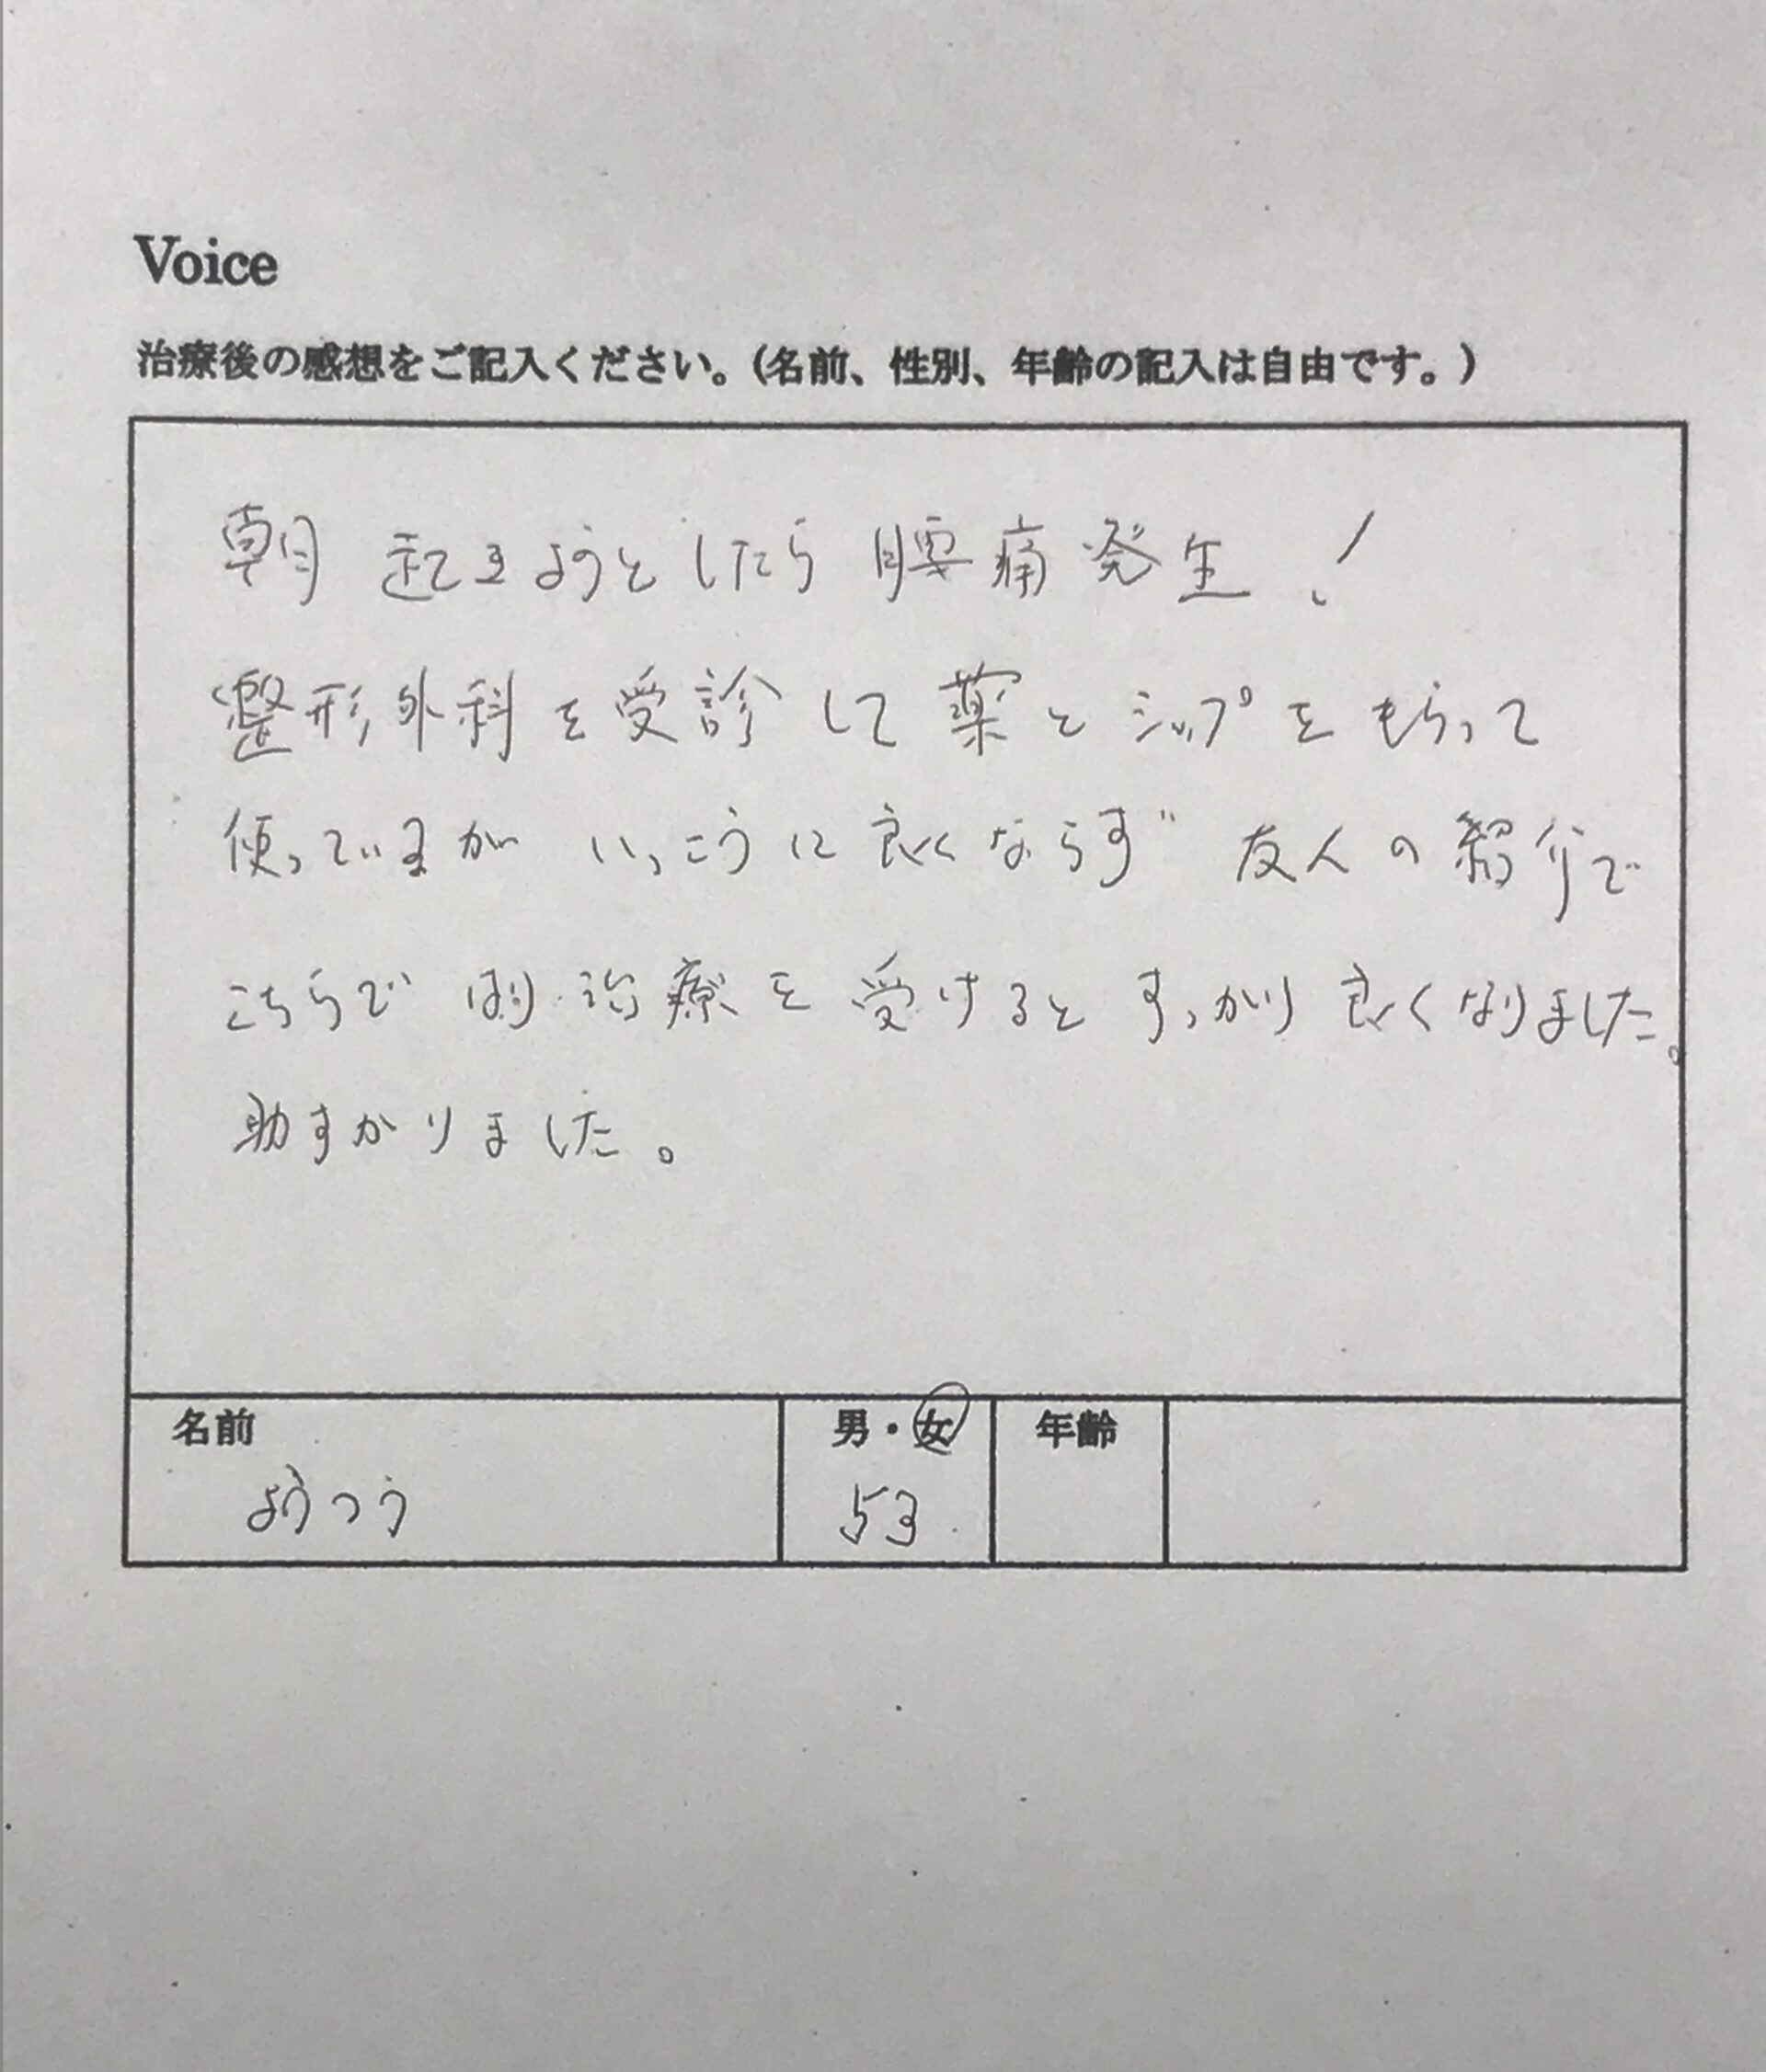 Voice
治療後の感想をご記入ください。（名前、性別、年齢の記入は自由です。）
朝 起きようとしたら 腰痛発生！
整形外科を受診して 薬とシップをもらって
使っているが いっこうに良くならず 友人の紹介で
こちらで はり治療を受けると すっかり良くなりました。
助すかりました。
名前 男・女 年齢
ようつう 53